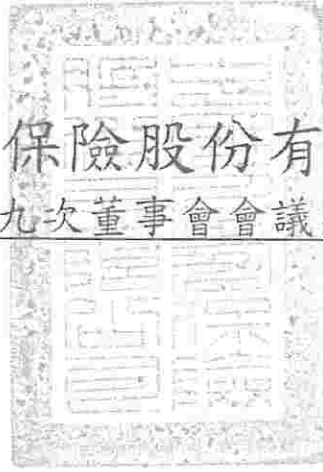 保險股份有
九次董事會會議